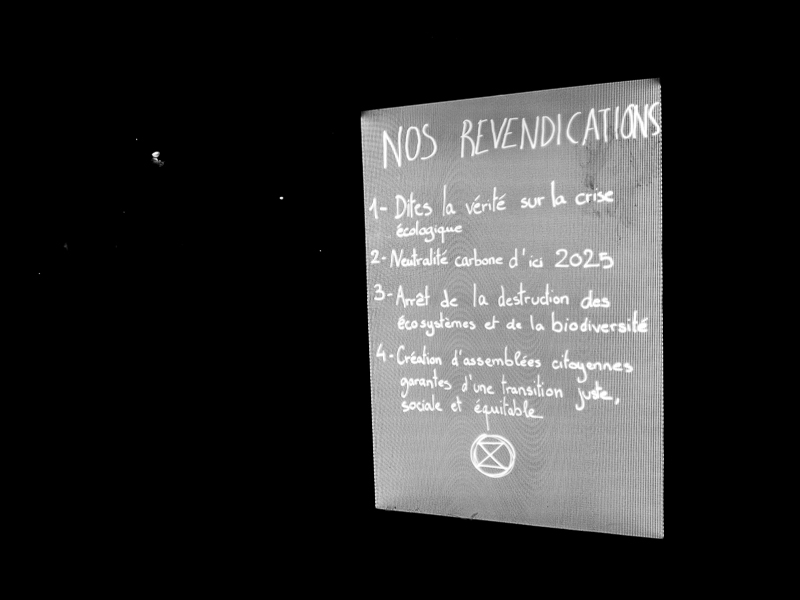 NOS REVENDICATIONS
1- Dites la vérité sur la crise
écologique
2- Neutralité carbone d'ici 2025
3- Arrêt de la destruction des
écosystèmes et de la biodiversité
4- Création d'assemblées citoyennes
garantes d'une transition juste,
sociale et équitable